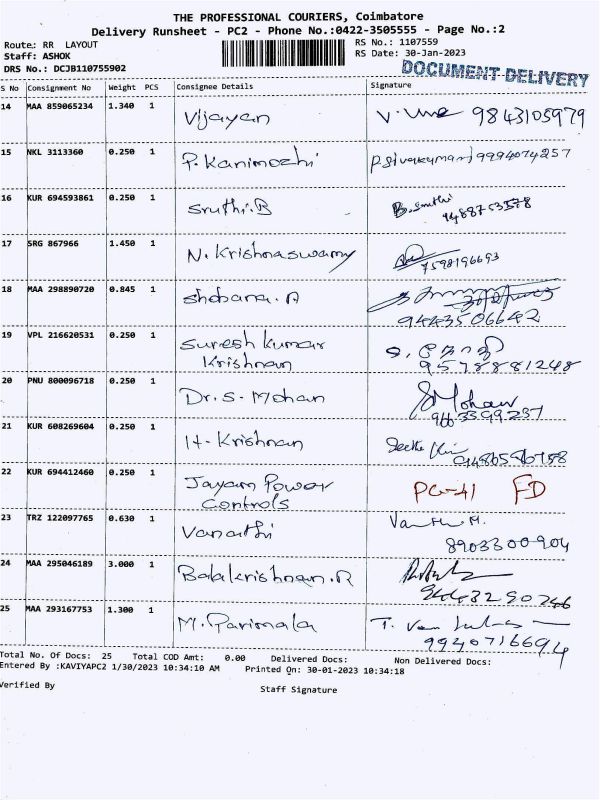 THE PROFESSIONAL COURIERS, Coimbatore
Delivery Runsheet - PC2 - Phone No.:0422-3505555 - Page No.:2
Route: RR LAYOUT RS No.: 1107559
Staff: ASHOK RS Date: 30-Jan-2023
DRS No.: DCJB110755902 DOCUMENT DELIVERY
S No Consignment No Weight PCS Consignee Details Signature
14 MAA 859065234 1.340 1 Vijayan 9843105979
15 NKL 3113360 0.250 1 P. Kanimozhi P Sivakumar 9994074257
16 KUR 694593861 0.250 1 Sruthi.B B. Sruthi
9488753578
17 SRG 867966 1.450 1 N. Krishnaswamy
7598196693
18 MAA 298890720 0.845 1 Shobana. A
9443506642
19 VPL 216620531 0.250 1 Suresh Kumar
Krishnan 9578881248
20 PNU 800096718 0.250 1 Dr. S. Mohan SMohan
9663399237
21 KUR 608269604 0.250 1 H. Krishnan
22 KUR 694412460 0.250 1 Jayam Power PC-41 FD
Controls
23 TRZ 122097765 0.630 1 Vanathi
8903300904
24 MAA 295046189 3.000 1 Balakrishnan. R
9443290746
25 MAA 293167753 1.300 1 M. Parimala
9940716694
Total No. Of Docs: 25 Total COD Amt: 0.00 Delivered Docs: Non Delivered Docs:
Entered By :KAVIYAPC2 1/30/2023 10:34:10 AM Printed On: 30-01-2023 10:34:18
Verified By Staff Signature